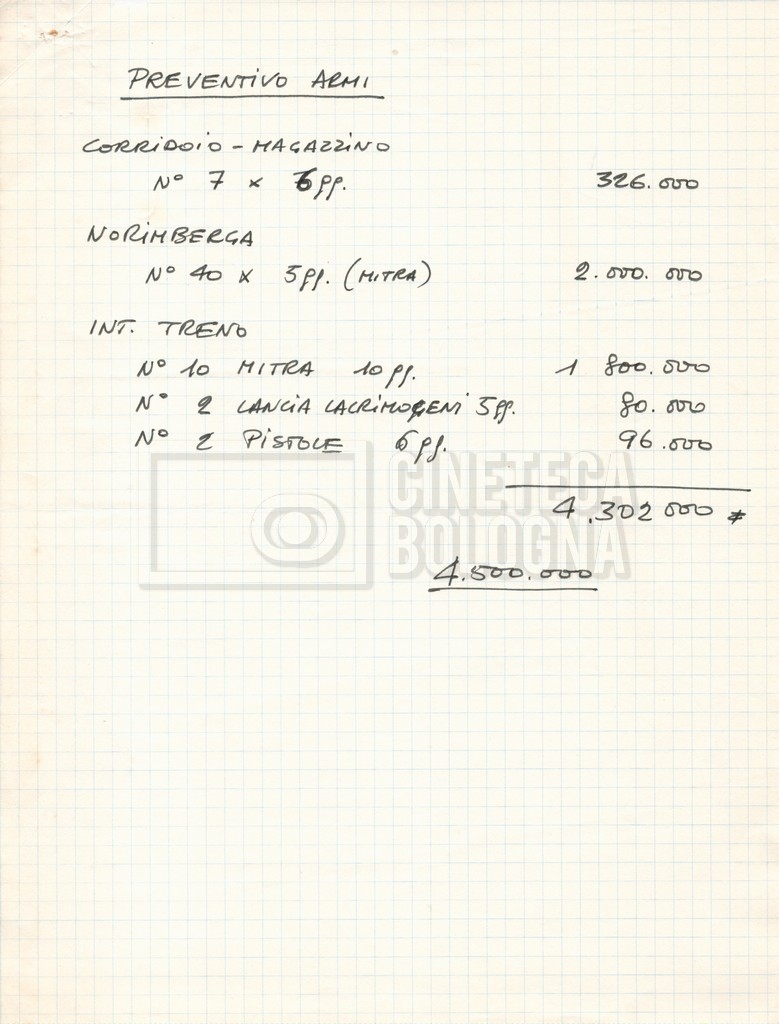 PREVENTIVO ARMI
CORRIDOIO - MAGAZZINO
N° 7 x 6 gg. 326.000
NORIMBERGA
N° 40 x 5 gg. (MITRA) 2.000.000
INT. TRENO
N° 10 MITRA 10 gg. 1 800.000
N° 2 LANCIA LACRIMOGENI 5 gg. 80.000
N° 2 PISTOLE 6 gg. 96.000
4.302 000 *
4.500.000
CINETECA
BOLOGNA